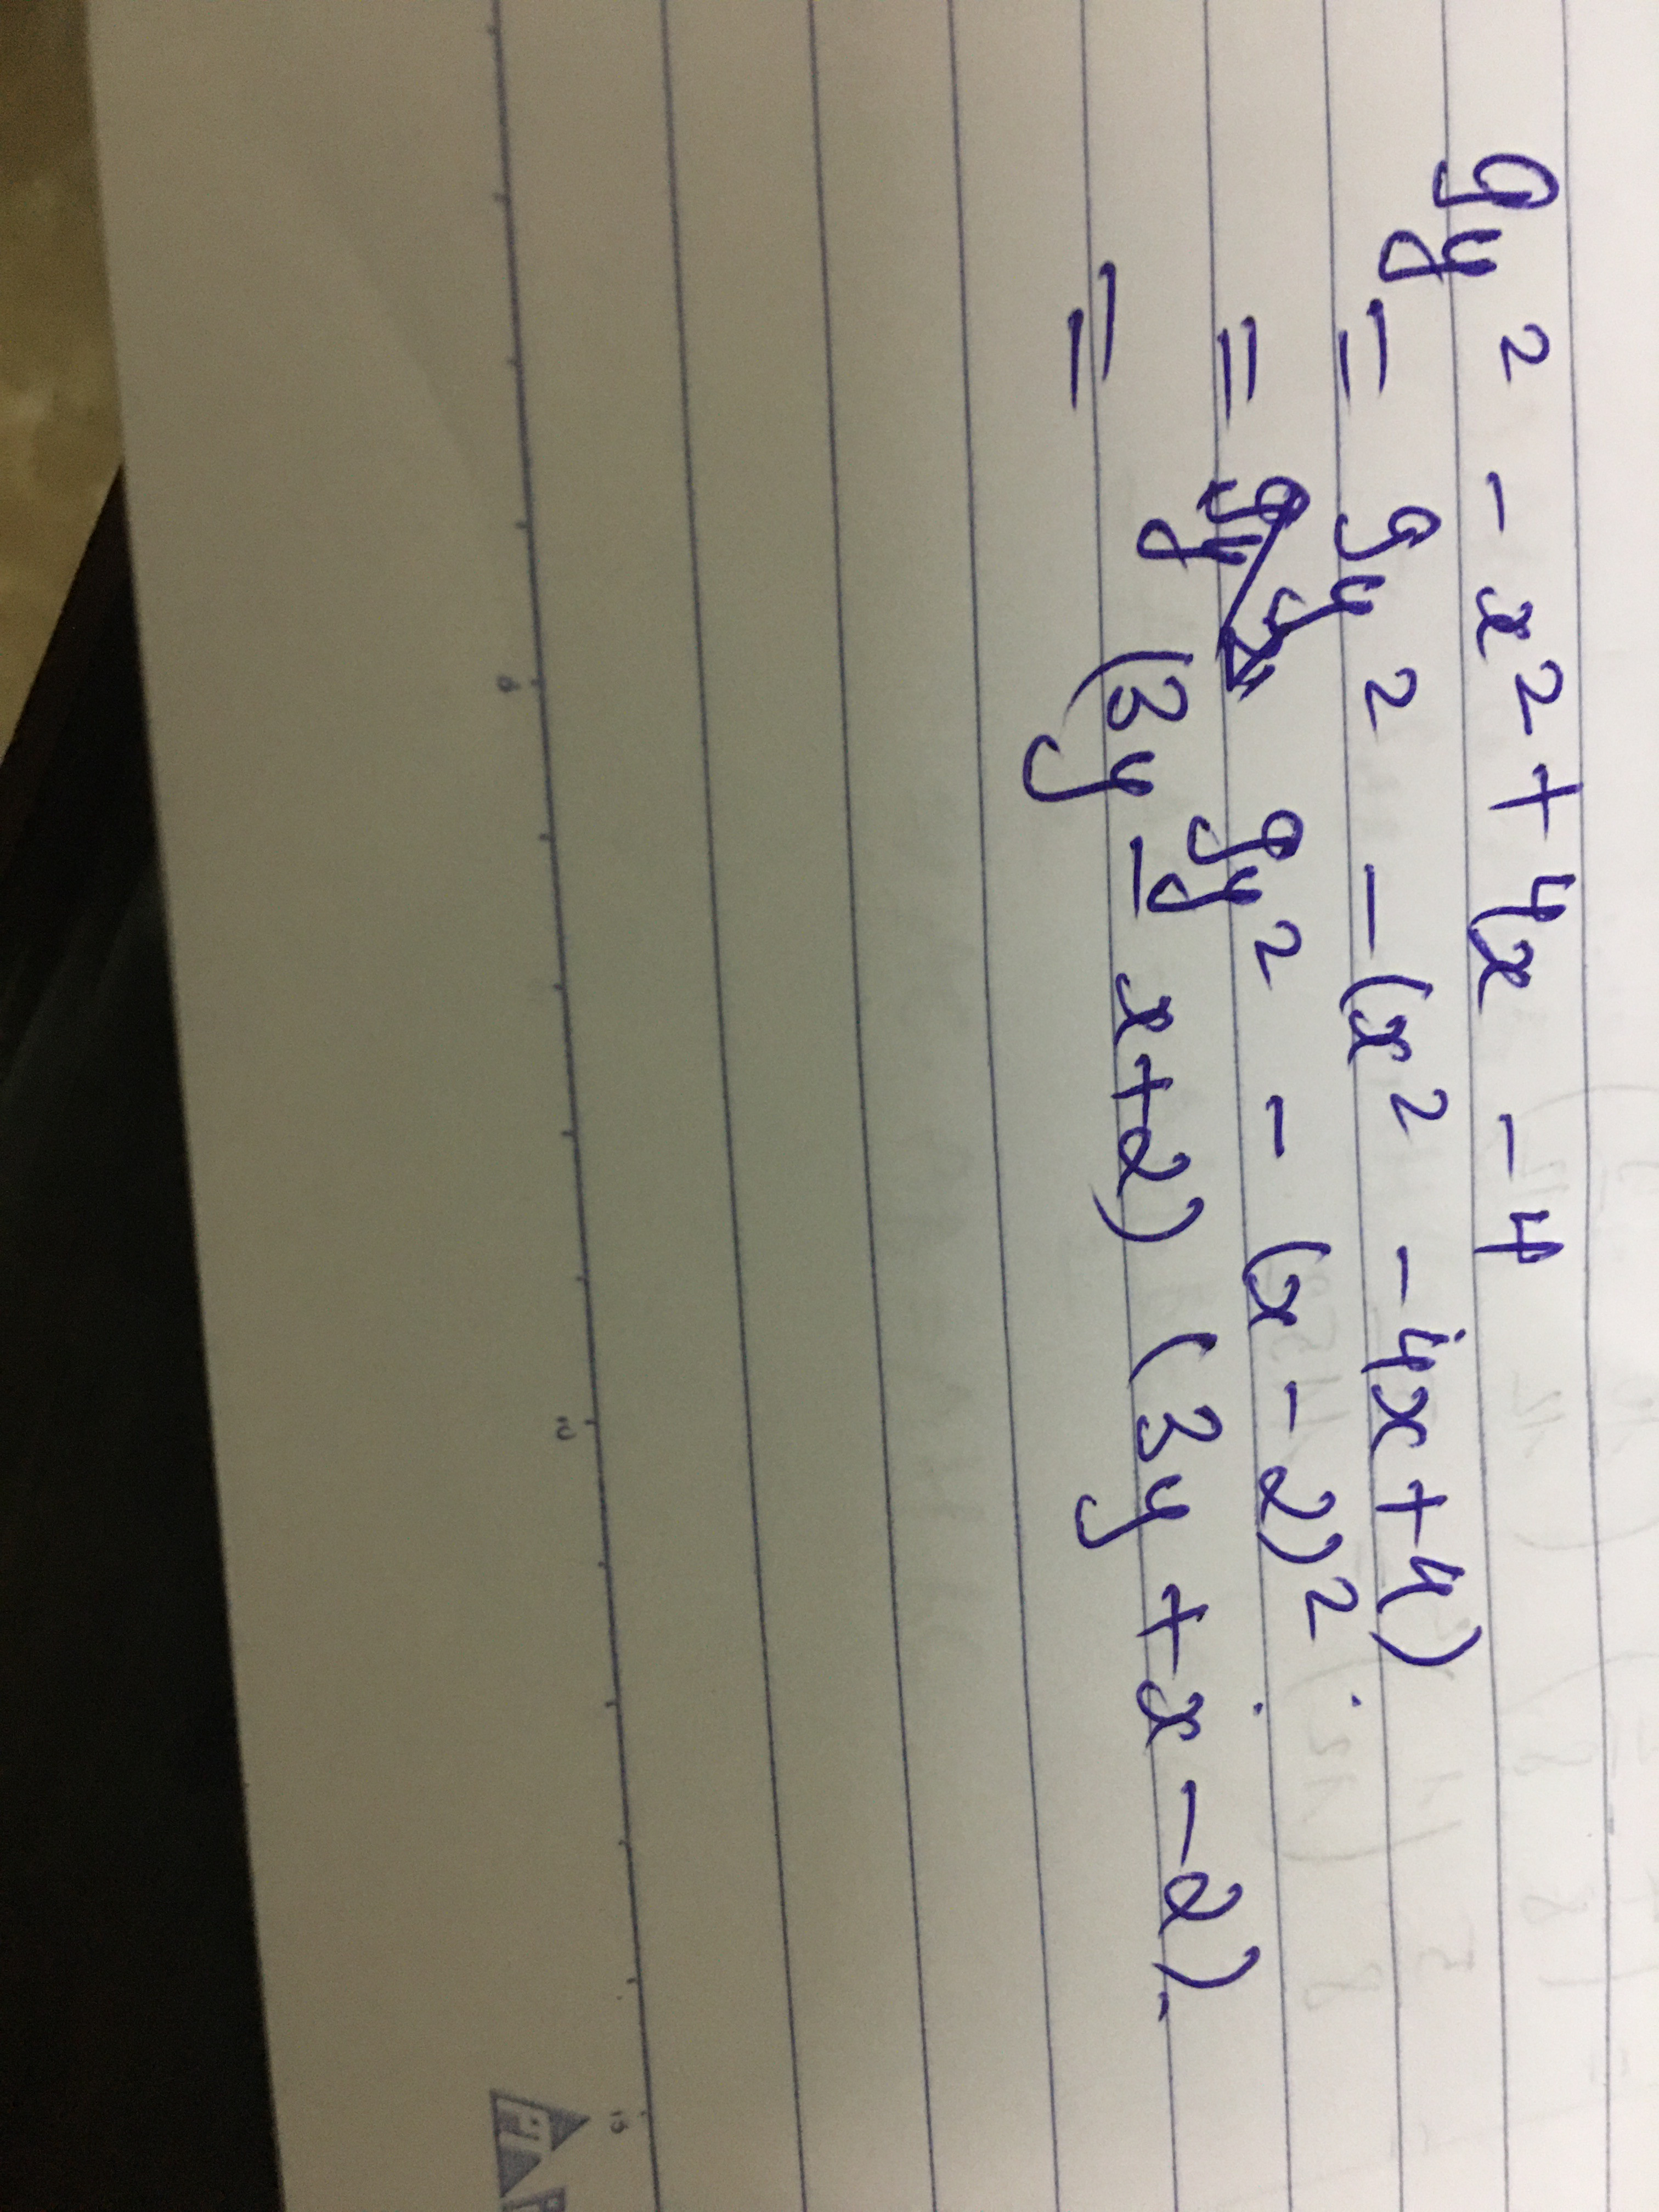 9y² - x² + 4x - 4
= 9y² - (x² - 4x + 4)
= 9y² - (x - 2)²
= (3y - x + 2) (3y + x - 2).
9
12
15